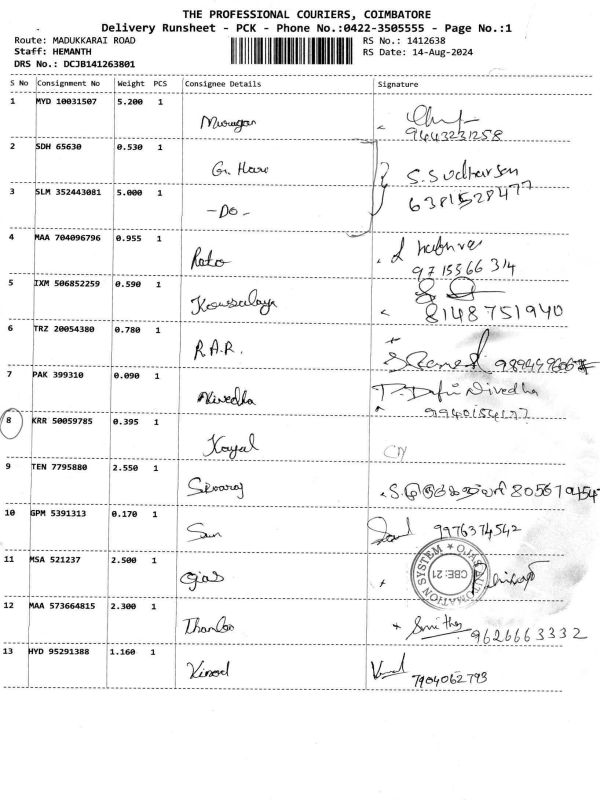 THE PROFESSIONAL COURIERS, COIMBATORE
Delivery Runsheet - PCK - Phone No.:0422-3505555 - Page No.:1
Route: MADUKKARAI ROAD RS No.: 1412638
Staff: HEMANTH RS Date: 14-Aug-2024
DRS No.: DCJB141263801
S No Consignment No Weight PCS Consignee Details Signature
1 MYD 10031507 5.200 1 Murugan
9443231258
2 SDH 65630 0.530 1 G. Hare S. Sudharsan
3 SLM 352443081 5.000 1 -Do- 6381528477
4 MAA 704096796 0.955 1
9715566314
5 IXM 506852259 0.590 1 Kowsalya
8148751940
6 TRZ 20054380 0.780 1 R.A.R.
7 PAK 399310 0.090 1 Nivedha Nivedha
8 KRR 50059785 0.395 1 Koyal
9 TEN 7795880 2.550 1
10 GPM 5391313 0.170 1 9976374542
11 MSA 521237 2.500 1 Ojas OJAS AUTOMATION SYSTEM * CBE: 21
12 MAA 573664815 2.300 1 Smitha
9626663332
13 HYD 95291388 1.160 1 Vinod
7904062793